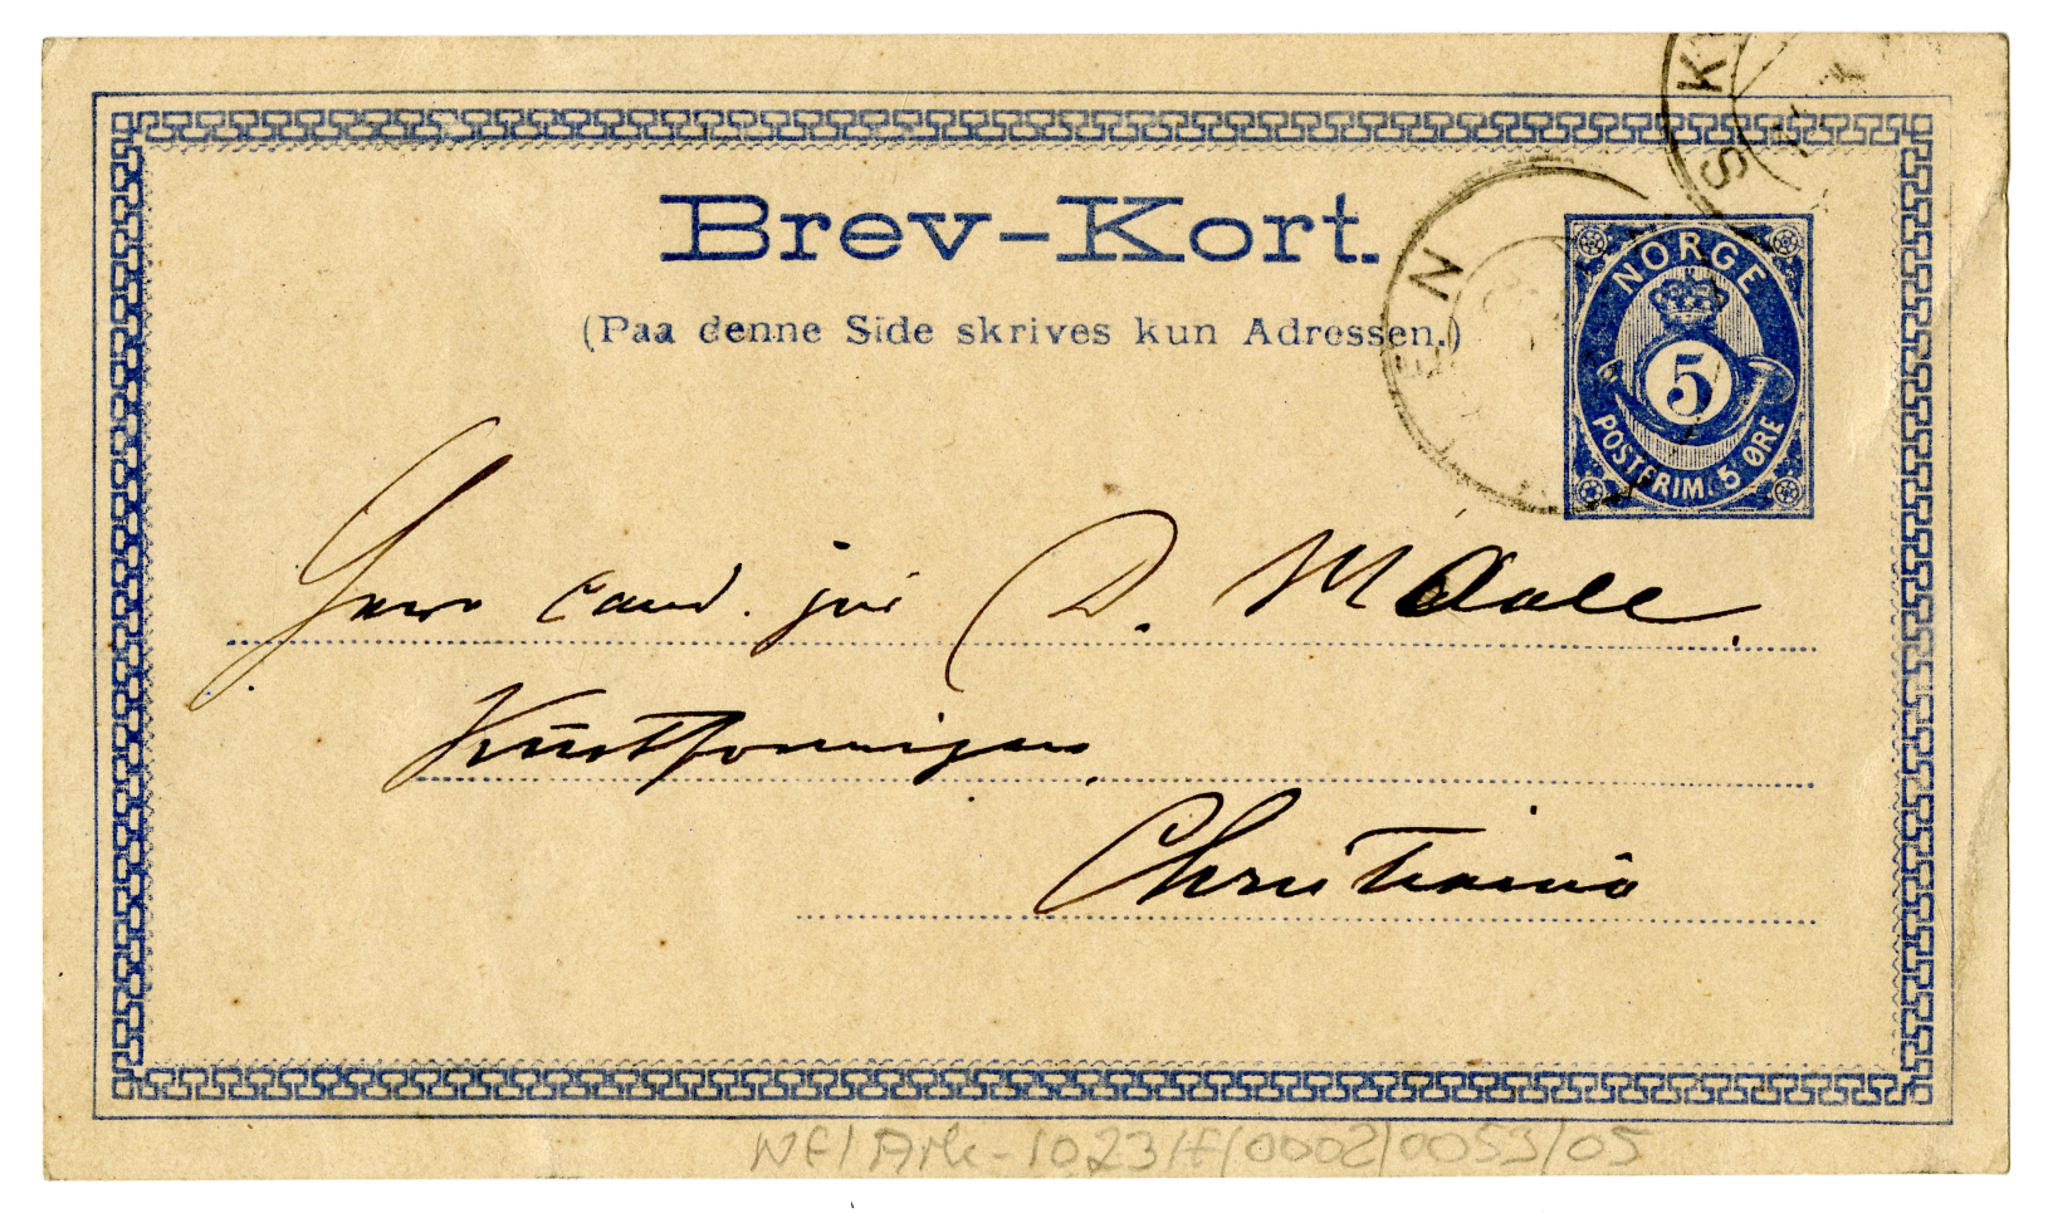 Brev-Kort.
(Paa denne Side skrives kun Adressen.)
NORGE
5
POSTFRIM. 5 ØRE
SK
EN
Herr cand. jur D. M Aall.
Kunstforeningen.
Christiania
NF/Ark-1023/F/0002/0053/05